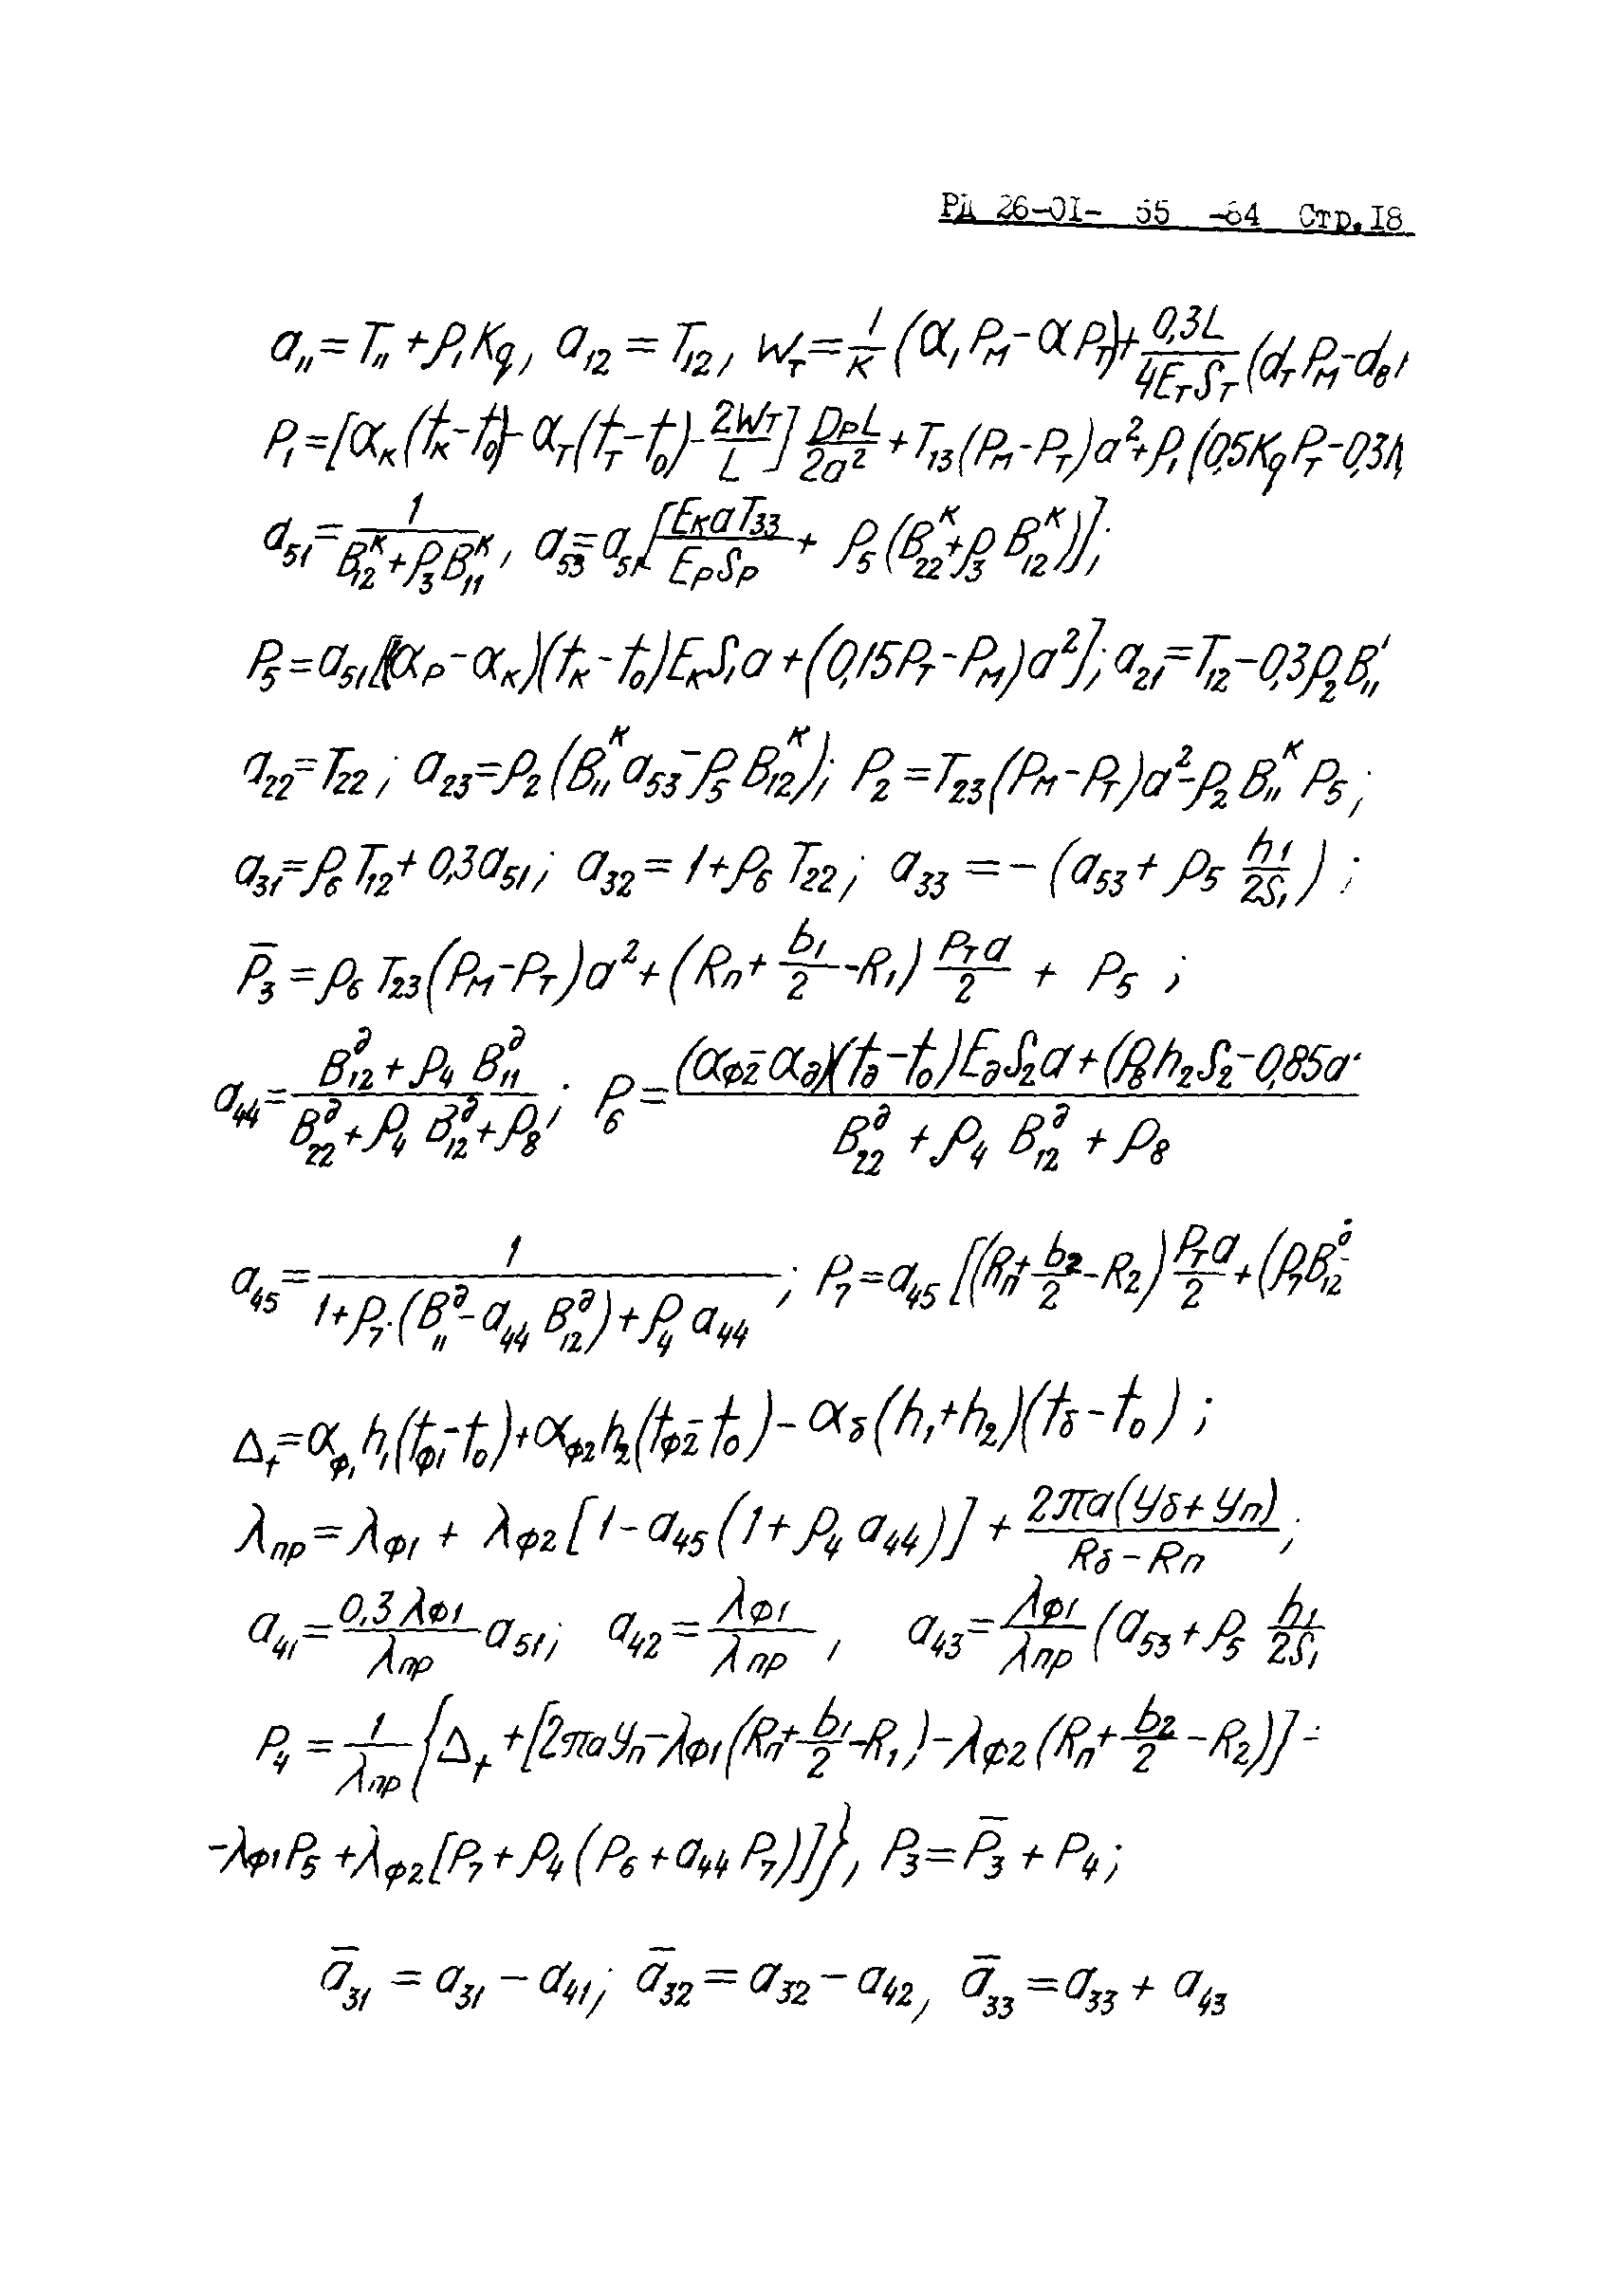 РД 26-01- 55 -84 Стр.18
a₁₁ = T₁₁ + ρ₁K_q, a₁₂ = T₁₂, W_т = 1/K (α₁P_м − αP_т) + 0,3L/(4E_тS_т) (d_тP_м − d_в
P₁ = [α_к(t_к − t₀) − α_т(t_т − t₀) − 2W_т/L] D_рL/(2a²) + T₁₃(P_м − P_т)a² + ρ₁(0,5K_qP_т − 0,3
a₅₁ = 1/(B₁₂ᴷ + ρ₃B₁₁ᴷ), a₅₃ = a₅₁[E_кaT₃₃/(E_рS_р) + ρ₅(B₂₂ᴷ + ρ₃B₁₂ᴷ)];
P₅ = a₅₁[(α_р − α_к)(t_к − t₀)E_кS₁a + (0,15P_т − P_м)a²]; a₂₁ = T₁₂ − 0,3ρ₂B₁₁
a₂₂ = T₂₂; a₂₃ = ρ₂(B₁₁ᴷa₅₃ − ρ₅B₁₂ᴷ); P₂ = T₂₃(P_м − P_т)a² − ρ₂B₁₁ᴷP₅;
a₃₁ = ρ₆T₁₂ + 0,3a₅₁; a₃₂ = 1 + ρ₆T₂₂; a₃₃ = −(a₅₃ + ρ₅ h₁/(2S₁));
P̄₃ = ρ₆T₂₃(P_м − P_т)a² + (R_п + b₁/2 − R₁) P_тa/2 + P₅;
a₄₄ = (B₁₂^д + ρ₄B₁₁^д)/(B₂₂^д + ρ₄B₁₂^д + ρ₈); P₆ = ((α_ф2 − α_д)(t_д − t₀)E_дS₂a + (ρ₈h₂S₂ − 0,85a)/(B₂₂^д + ρ₄B₁₂^д + ρ₈)
a₄₅ = 1/(1 + ρ₇·(B₁₁^д − a₄₄B₁₂^д) + ρ₄a₄₄); P₇ = a₄₅[(R_п + b₂/2 − R₂) P_тa/2 + (ρ₇B₁₂^д −
Δ_t = α_ф1h₁(t_ф1 − t₀) + α_ф2h₂(t_ф2 − t₀) − α_б(h₁ + h₂)(t_б − t₀);
λ_пр = λ_ф1 + λ_ф2[1 − a₄₅(1 + ρ₄a₄₄)] + 2πa(y_б + y_п)/(R_б − R_п);
a₄₁ = 0,3λ_ф1/λ_пр a₅₁; a₄₂ = λ_ф1/λ_пр, a₄₃ = λ_ф1/λ_пр (a₅₃ + ρ₅ h₁/(2S₁)
P₄ = 1/λ_пр {Δ_t + [2πay_п − λ_ф1(R_п + b₁/2 − R₁) − λ_ф2(R_п + b₂/2 − R₂)] −
−λ_ф1P₅ + λ_ф2[P₇ + ρ₄(P₆ + a₄₄P₇)]}, P₃ = P̄₃ + P₄;
ā₃₁ = a₃₁ − a₄₁; ā₃₂ = a₃₂ − a₄₂, ā₃₃ = a₃₃ + a₄₃